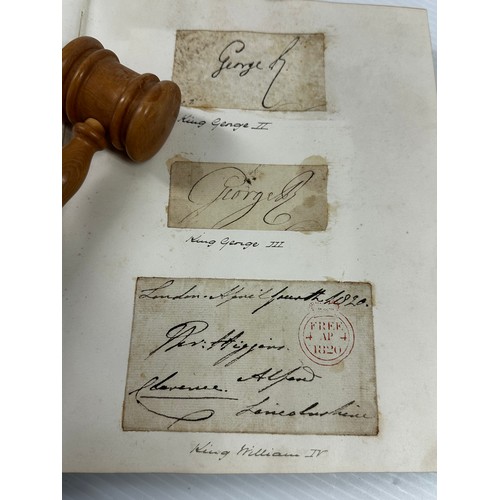 George R
King George II
George R
King George III
London April fourth 1820.
Rev: Higgins.
Alford
Clarence.
Lincolnshire
FREE
4 AP 4
1820
King William IV